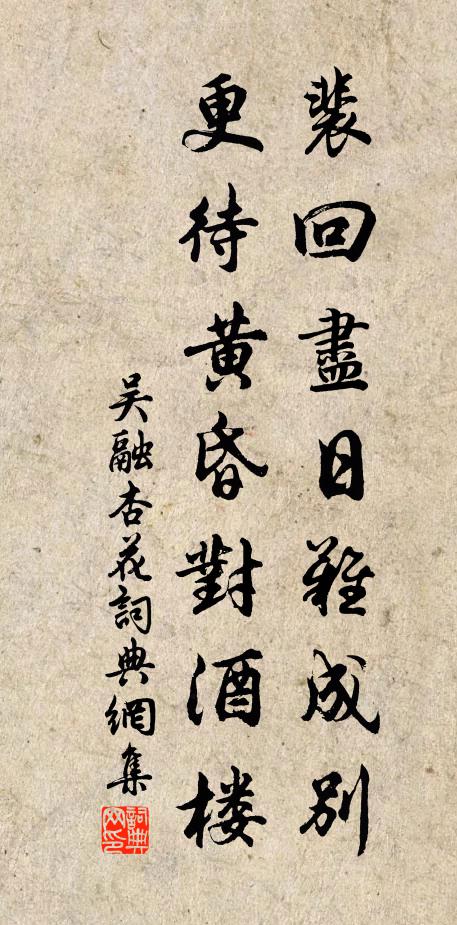 裴回盡日難成別
更待黄昏對酒樓
吴融杏花詞典網集
詞典網印